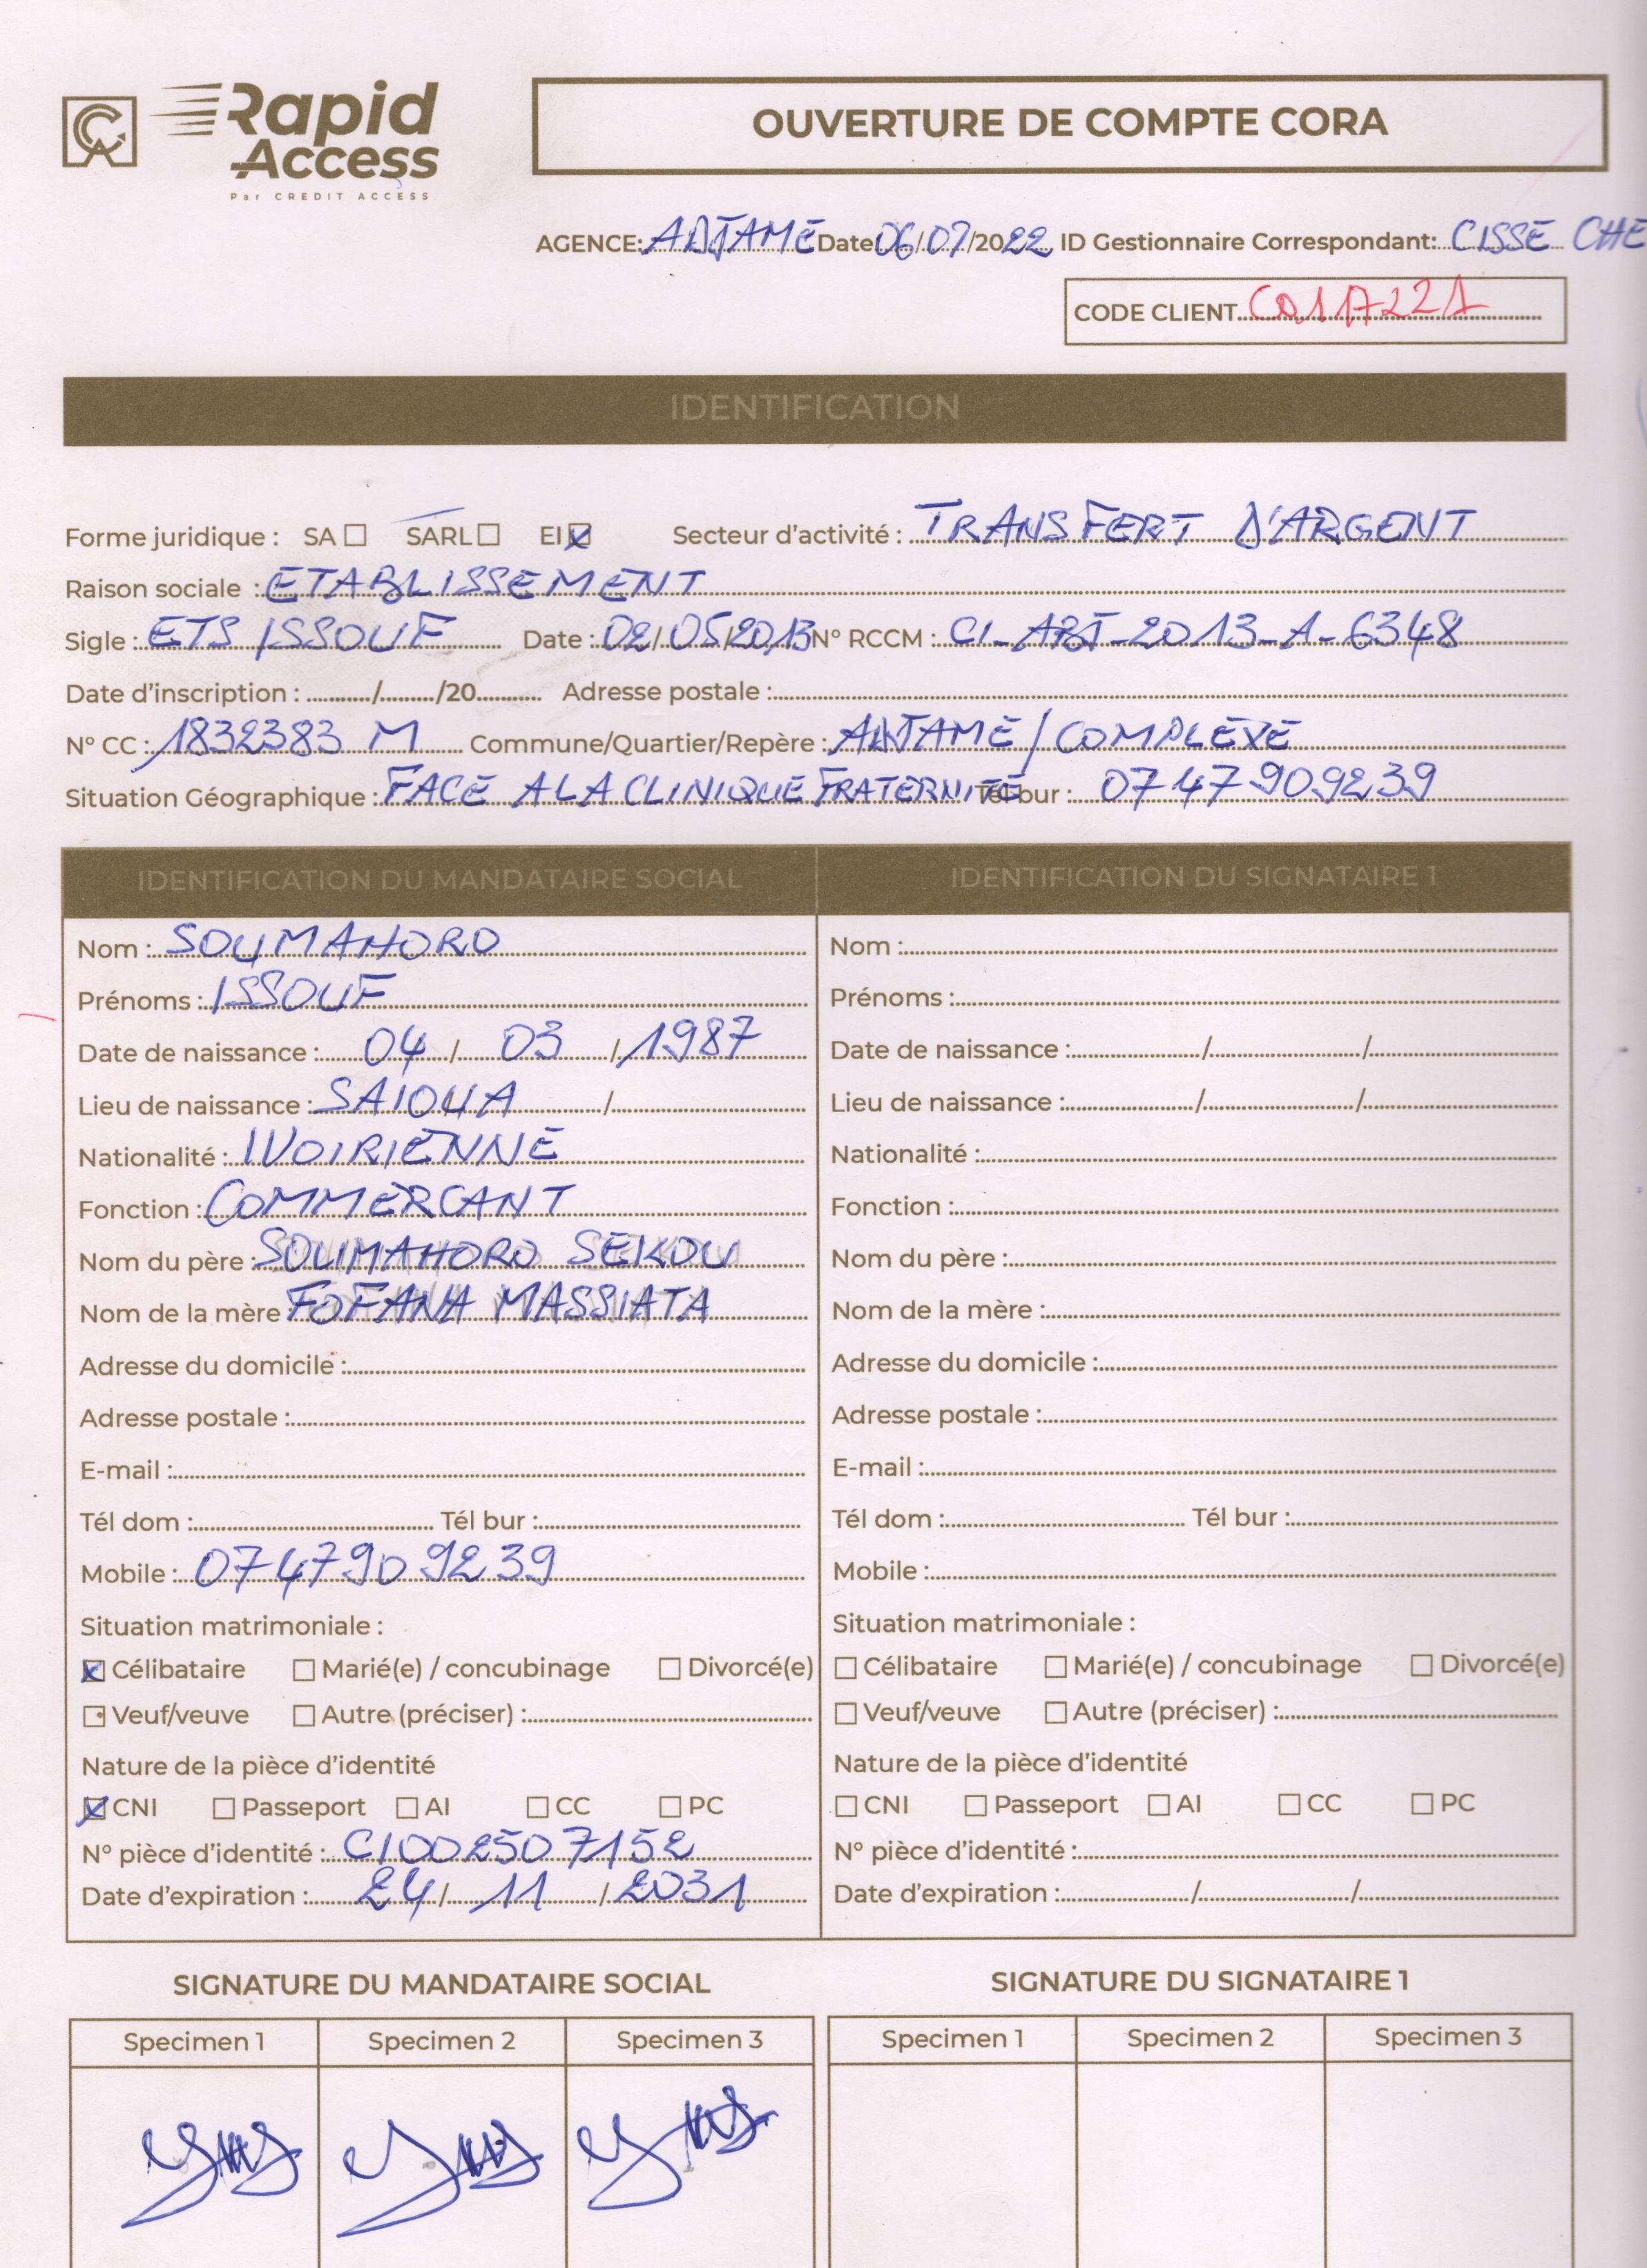 Rapid
Access
Par CREDIT ACCESS
OUVERTURE DE COMPTE CORA
AGENCE: ADJAMÉ Date 06/07/2022 ID Gestionnaire Correspondant: CISSE CHE
CODE CLIENT
IDENTIFICATION
Forme juridique : SA ☐ SARL ☐ EI ☒ Secteur d'activité : TRANSFERT D'ARGENT
Raison sociale : ETABLISSEMENT
Sigle : ETS ISSOUF Date : 02/05/2013 N° RCCM : CI-ABJ-2013-A-6348
Date d'inscription : ........../........./20........... Adresse postale :
N° CC : 1832383 M Commune/Quartier/Repère : ADJAMÉ / COMPLEXE
Situation Géographique : FACE A LA CLINIQUE FRATERNITÉ Tél bur : 0747909239
IDENTIFICATION DU MANDATAIRE SOCIAL
Nom : SOUMAHORO
Prénoms : ISSOUF
Date de naissance : 04 / 03 / 1987
Lieu de naissance : SAIOUA /
Nationalité : IVOIRIENNE
Fonction : COMMERCANT
Nom du père : SOUMAHORO SEKOU
Nom de la mère : FOFANA MASSIATA
Adresse du domicile :
Adresse postale :
E-mail :
Tél dom : Tél bur :
Mobile : 0747909239
Situation matrimoniale :
☒ Célibataire ☐ Marié(e) / concubinage ☐ Divorcé(e)
☐ Veuf/veuve ☐ Autre (préciser) :
Nature de la pièce d'identité
☒ CNI ☐ Passeport ☐ AI ☐ CC ☐ PC
N° pièce d'identité : CI002507152
Date d'expiration : 24 / 11 / 2031
IDENTIFICATION DU SIGNATAIRE 1
Nom :
Prénoms :
Date de naissance : / /
Lieu de naissance : / /
Nationalité :
Fonction :
Nom du père :
Nom de la mère :
Adresse du domicile :
Adresse postale :
E-mail :
Tél dom : Tél bur :
Mobile :
Situation matrimoniale :
☐ Célibataire ☐ Marié(e) / concubinage ☐ Divorcé(e)
☐ Veuf/veuve ☐ Autre (préciser) :
Nature de la pièce d'identité
☐ CNI ☐ Passeport ☐ AI ☐ CC ☐ PC
N° pièce d'identité :
Date d'expiration : / /
SIGNATURE DU MANDATAIRE SOCIAL
Specimen 1 Specimen 2 Specimen 3
SIGNATURE DU SIGNATAIRE 1
Specimen 1 Specimen 2 Specimen 3